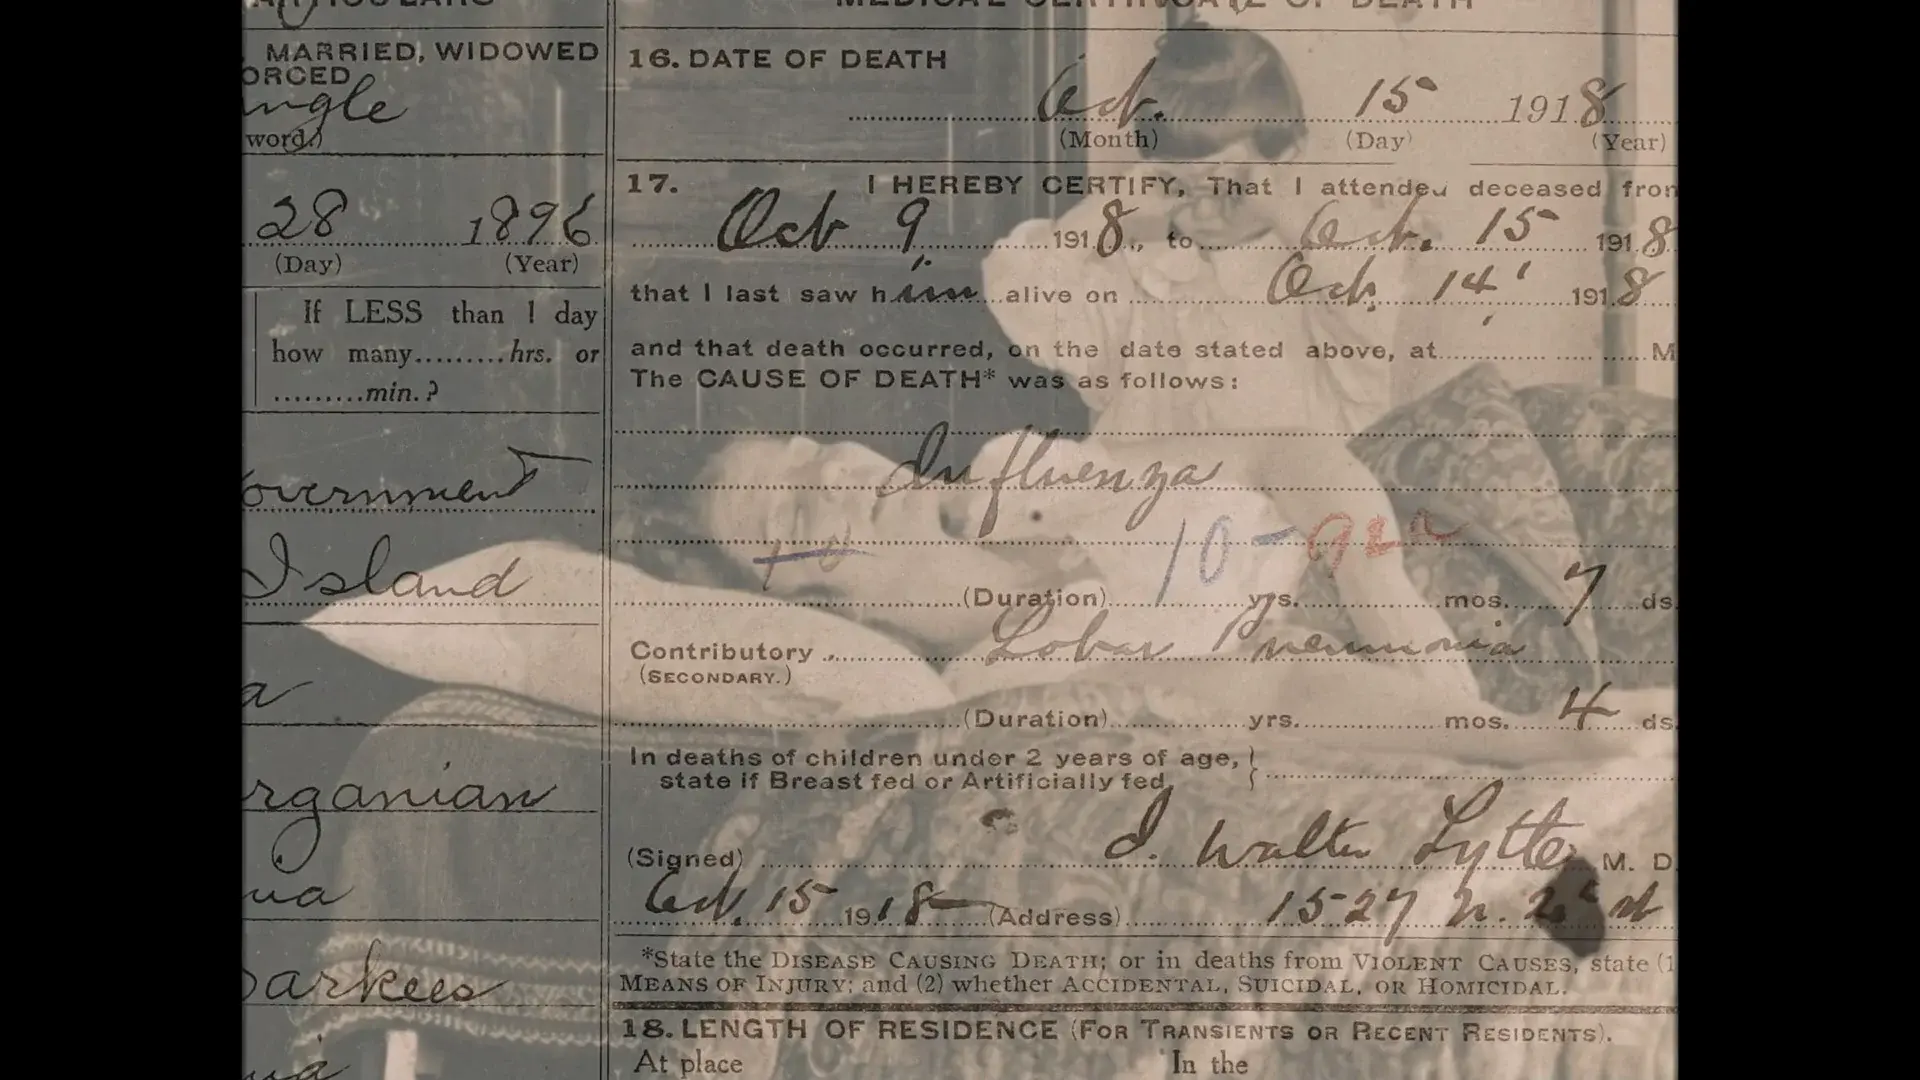 MEDICAL CERTIFICATE OF DEATH
MARRIED, WIDOWED
ORCED
ngle
word.)
28 1896
(Day) (Year)
If LESS than 1 day
how many.........hrs. or
.........min.?
overnment
Island
a
rganian
ua
arkees
16. DATE OF DEATH
Oct. 15 1918
(Month) (Day) (Year)
17. I HEREBY CERTIFY, That I attended deceased from
Oct 9 1918, to Oct. 15 1918
that I last saw him alive on Oct. 14 1918
and that death occurred, on the date stated above, at M
The CAUSE OF DEATH* was as follows:
Influenza
10-92a
(Duration) yrs. mos. 7 ds.
Contributory Lobar Pneumonia
(SECONDARY.)
(Duration) yrs. mos. 4 ds.
In deaths of children under 2 years of age,
state if Breast fed or Artificially fed
(Signed) J. Walter Lytte M. D
Oct. 15 1918 (Address) 1527 N. 2nd st
*State the DISEASE CAUSING DEATH; or in deaths from VIOLENT CAUSES, state (1
MEANS OF INJURY; and (2) whether ACCIDENTAL, SUICIDAL, OR HOMICIDAL.
18. LENGTH OF RESIDENCE (FOR TRANSIENTS OR RECENT RESIDENTS).
At place In the